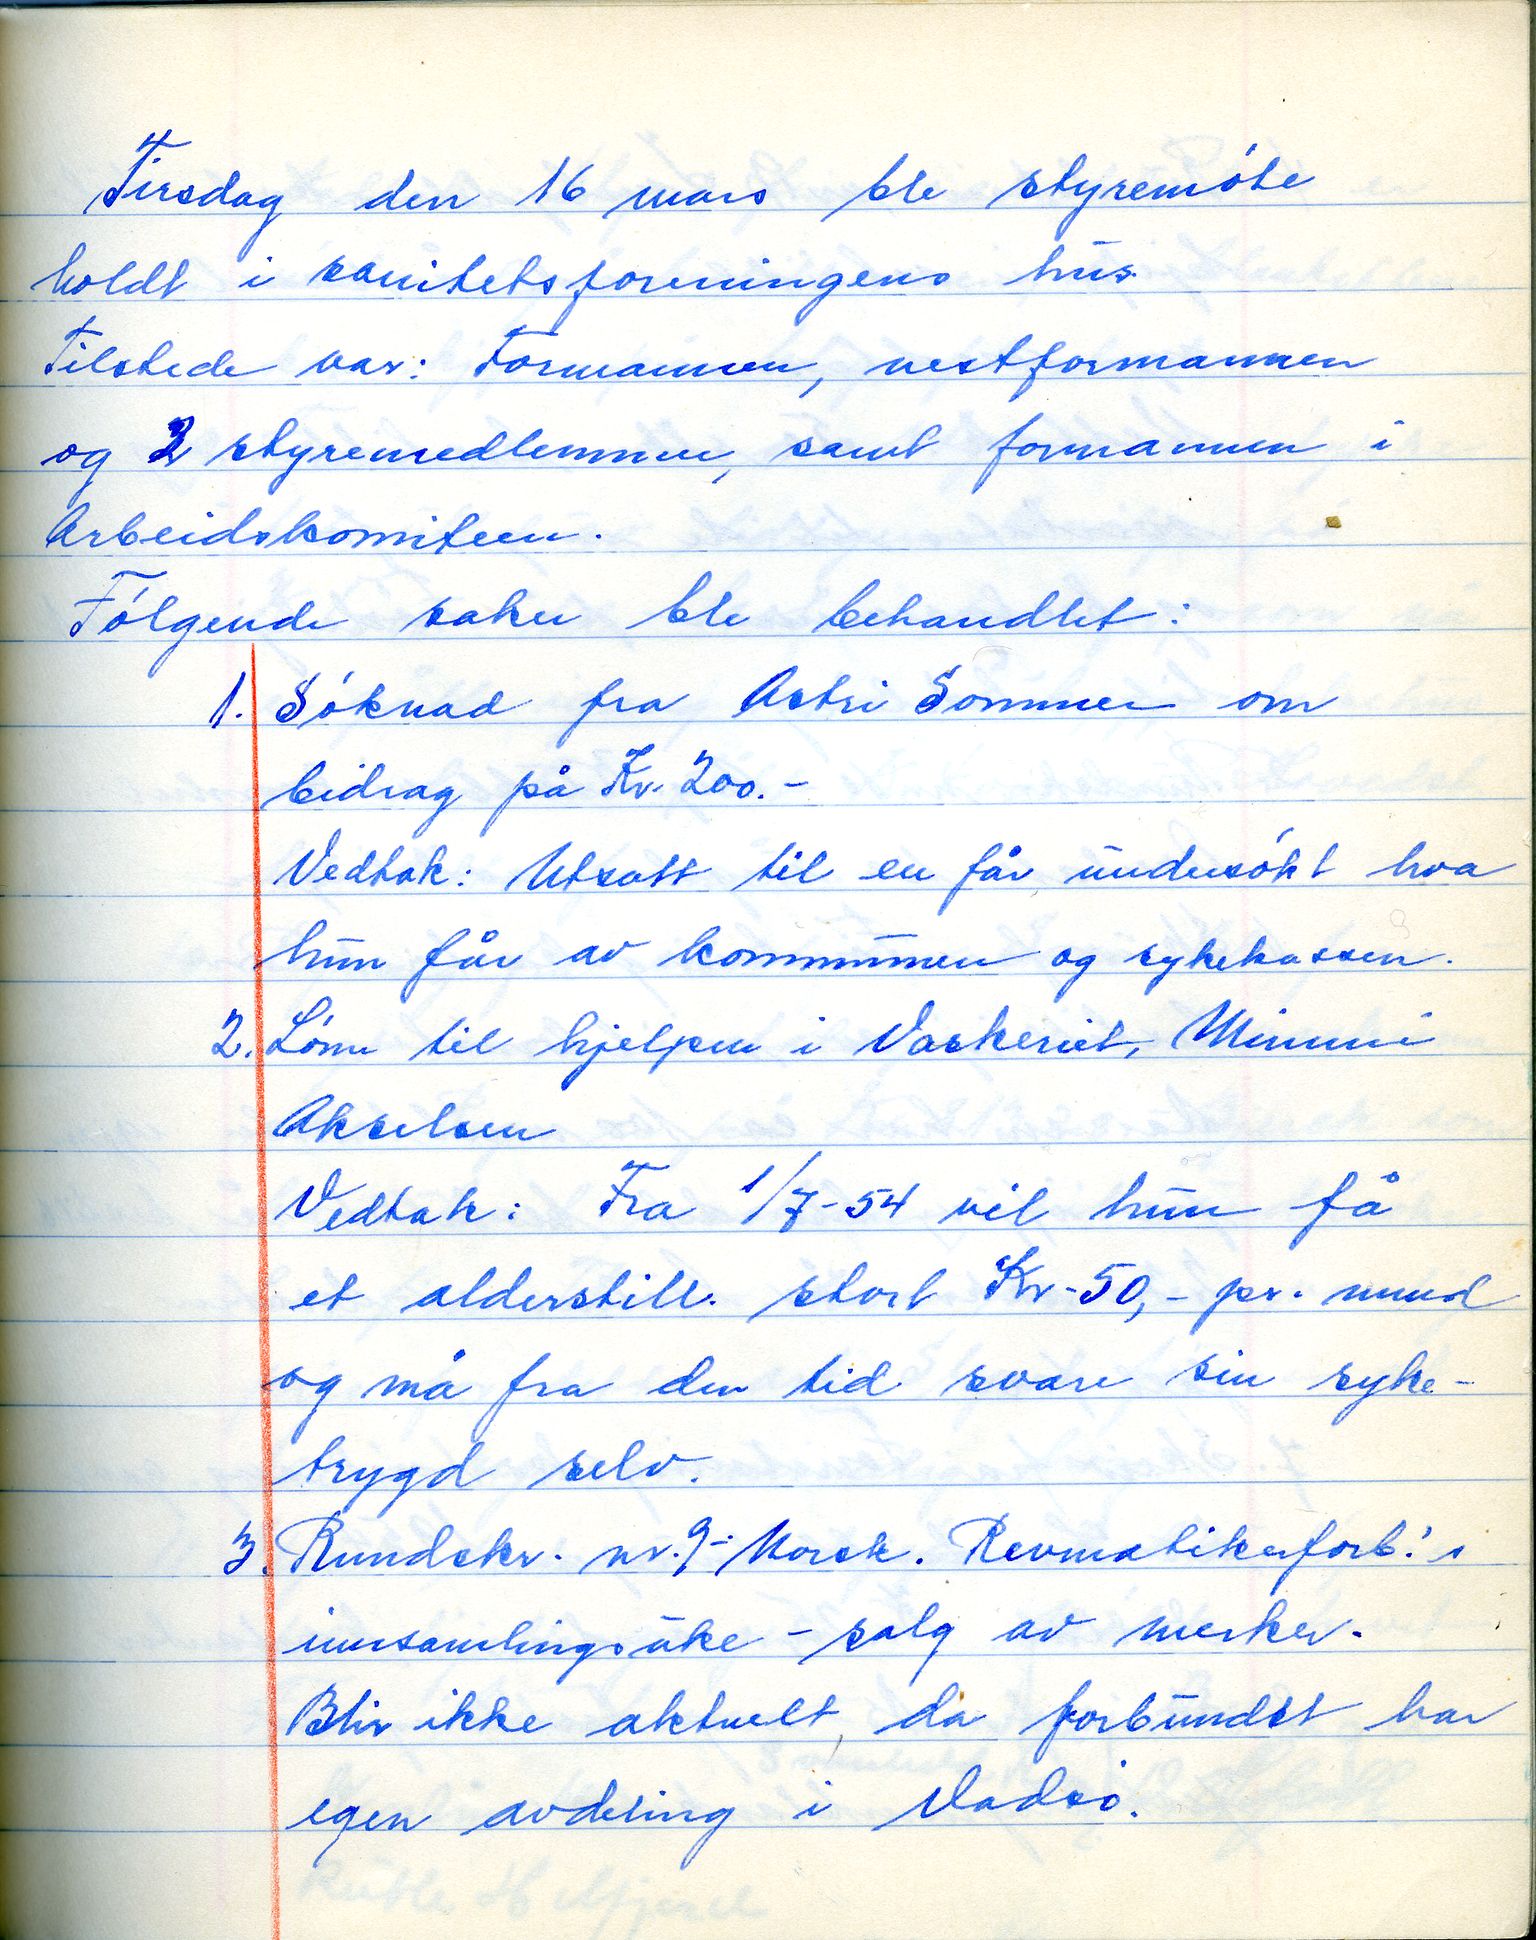 Tirsdag den 16 mars ble styremóte
holdt i sanitetsforeningens hus.
Tilstede var: Formannen, nestformannen
og 2 styremedlemmer, samt formannen i
Arbeidskomiteen.
Fólgende saker ble behandlet:
1. Sóknad fra Astri Sommer om
bidrag på Kr. 200.-
Vedtak: Utsatt til en får undersókt hva
hun får av kommunen og sykekassen.
2. Lónn til hjelpen i Vaskeriet, Mimmi
Akselsen
Vedtak: Fra 1/7-54 vil hun få
et alderstill. stort Kr-50,- pr. mnd
og må fra den tid svare sin syke-
trygd selv.
3. Rundskr. nr. 9- Norsk. Revmatikerforb.'s
innsamlingsuke - salg av merker.
Blir ikke aktuelt, da forbundet har
egen avdeling i Vadsó.